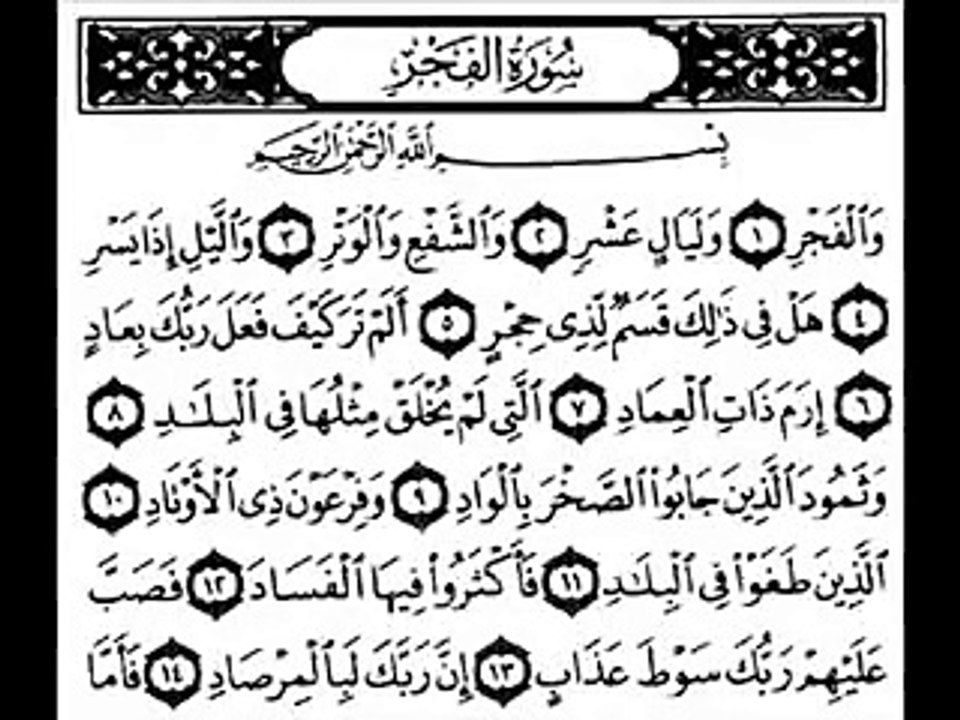 سُورَةُ الفَجْرِ
بِسْمِ ٱللَّهِ ٱلرَّحْمَٰنِ ٱلرَّحِيمِ
وَٱلْفَجْرِ ١ وَلَيَالٍ عَشْرٍ ٢ وَٱلشَّفْعِ وَٱلْوَتْرِ ٣ وَٱلَّيْلِ إِذَا يَسْرِ
٤ هَلْ فِى ذَٰلِكَ قَسَمٌ لِّذِى حِجْرٍ ٥ أَلَمْ تَرَ كَيْفَ فَعَلَ رَبُّكَ بِعَادٍ
٦ إِرَمَ ذَاتِ ٱلْعِمَادِ ٧ ٱلَّتِى لَمْ يُخْلَقْ مِثْلُهَا فِى ٱلْبِلَٰدِ ٨
وَثَمُودَ ٱلَّذِينَ جَابُوا۟ ٱلصَّخْرَ بِٱلْوَادِ ٩ وَفِرْعَوْنَ ذِى ٱلْأَوْتَادِ ١٠
ٱلَّذِينَ طَغَوْا۟ فِى ٱلْبِلَٰدِ ١١ فَأَكْثَرُوا۟ فِيهَا ٱلْفَسَادَ ١٢ فَصَبَّ
عَلَيْهِمْ رَبُّكَ سَوْطَ عَذَابٍ ١٣ إِنَّ رَبَّكَ لَبِٱلْمِرْصَادِ ١٤ فَأَمَّا